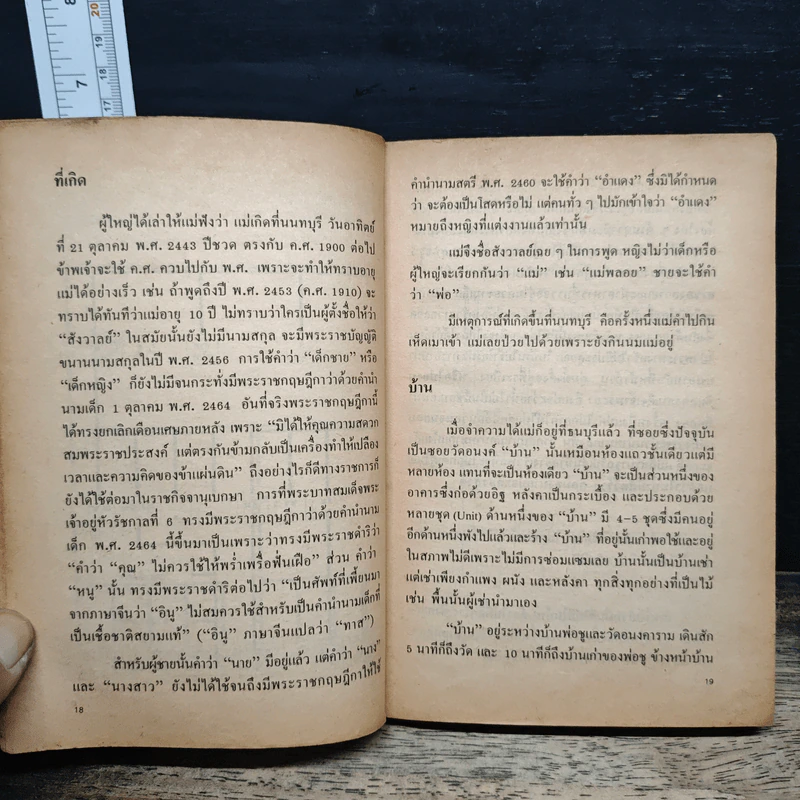 ที่เกิด
ผู้ใหญ่ได้เล่าให้แม่ฟังว่า แม่เกิดที่นนทบุรี วันอาทิตย์
ที่ 21 ตุลาคม พ.ศ. 2443 ปีชวด ตรงกับ ค.ศ. 1900 ต่อไป
ข้าพเจ้าจะใช้ ค.ศ. ควบไปกับ พ.ศ. เพราะจะทำให้ทราบอายุ
แม่ได้อย่างเร็ว เช่น ถ้าพูดถึงปี พ.ศ. 2453 (ค.ศ. 1910) จะ
ทราบได้ทันทีว่าแม่อายุ 10 ปี ไม่ทราบว่าใครเป็นผู้ตั้งชื่อให้ว่า
“สังวาลย์” ในสมัยนั้นยังไม่มีนามสกุล จะมีพระราชบัญญัติ
ขนานนามสกุลในปี พ.ศ. 2456 การใช้คำว่า “เด็กชาย” หรือ
“เด็กหญิง” ก็ยังไม่มีจนกระทั่งมีพระราชกฤษฎีกาว่าด้วยคำนำ
นามเด็ก 1 ตุลาคม พ.ศ. 2464 อันที่จริงพระราชกฤษฎีกานี้
ได้ทรงยกเลิกเดือนเศษภายหลัง เพราะ “มิได้ให้คุณความสดวก
สมพระราชประสงค์ แต่ตรงกันข้ามกลับเป็นเครื่องทำให้เปลือง
เวลาและความคิดของข้าแผ่นดิน” ถึงอย่างไรก็ดีทางราชการก็
ยังได้ใช้ต่อมาในราชกิจจานุเบกษา การที่พระบาทสมเด็จพระ
เจ้าอยู่หัวรัชกาลที่ 6 ทรงมีพระราชกฤษฎีกาว่าด้วยคำนำนาม
เด็ก พ.ศ. 2464 นี้ขึ้นมาเป็นเพราะว่าทรงมีพระราชดำริว่า
“คำว่า “คุณ” ไม่ควรใช้ให้พร่ำเพรื่อฟั่นเฝือ” ส่วน คำว่า
“หนู” นั้น ทรงมีพระราชดำริต่อไปว่า “เป็นศัพท์ที่เพี้ยนมา
จากภาษาจีนว่า “อินู” ไม่สมควรใช้สำหรับเป็นคำนำนามเด็กที่
เป็นเชื้อชาติสยามแท้” (“อินู” ภาษาจีนแปลว่า “ทาส”)
สำหรับผู้ชายนั้นคำว่า “นาย” มีอยู่แล้ว แต่คำว่า “นาง”
และ “นางสาว” ยังไม่ได้ใช้จนถึงมีพระราชกฤษฎีกาให้ใช้
18
คำนำนามสตรี พ.ศ. 2460 จะใช้คำว่า “อำแดง” ซึ่งมิได้กำหนด
ว่า จะต้องเป็นโสดหรือไม่ แต่คนทั่ว ๆ ไปมักเข้าใจว่า “อำแดง”
หมายถึงหญิงที่แต่งงานแล้วเท่านั้น
แม่จึงชื่อสังวาลย์เฉย ๆ ในการพูด หญิงไม่ว่าเด็กหรือ
ผู้ใหญ่จะเรียกกันว่า “แม่” เช่น “แม่พลอย” ชายจะใช้คำ
ว่า “พ่อ”
มีเหตุการณ์ที่เกิดขึ้นที่นนทบุรี คือครั้งหนึ่งแม่คำไปกิน
เห็ดเมาเข้า แม่เลยป่วยไปด้วยเพราะยังกินนมแม่อยู่
บ้าน
เมื่อจำความได้แม่ก็อยู่ที่ธนบุรีแล้ว ที่ซอยซึ่งปัจจุบัน
เป็นซอยวัดอนงค์ “บ้าน” นั้นเหมือนห้องแถวชั้นเดียวแต่มี
หลายห้อง แทนที่จะเป็นห้องเดียว “บ้าน” จะเป็นส่วนหนึ่งของ
อาคารซึ่งก่อด้วยอิฐ หลังคาเป็นกระเบื้อง และประกอบด้วย
หลายชุด (Unit) ด้านหนึ่งของ “บ้าน” มี 4-5 ชุดซึ่งมีคนอยู่
อีกด้านหนึ่งพังไปแล้วและร้าง “บ้าน” ที่อยู่นั้นเก่าพอใช้และอยู่
ในสภาพไม่ดีเพราะไม่มีการซ่อมแซมเลย บ้านนั้นเป็นบ้านเช่า
แต่เช่าเพียงกำแพง ผนัง และหลังคา ทุกสิ่งทุกอย่างที่เป็นไม้
เช่น พื้นนั้นผู้เช่านำมาเอง
“บ้าน” อยู่ระหว่างบ้านพ่อชูและวัดอนงคาราม เดินสัก
5 นาทีก็ถึงวัด และ 10 นาทีก็ถึงบ้านเก่าของพ่อชู ข้างหน้าบ้าน
19
7
8
17
18
19
20